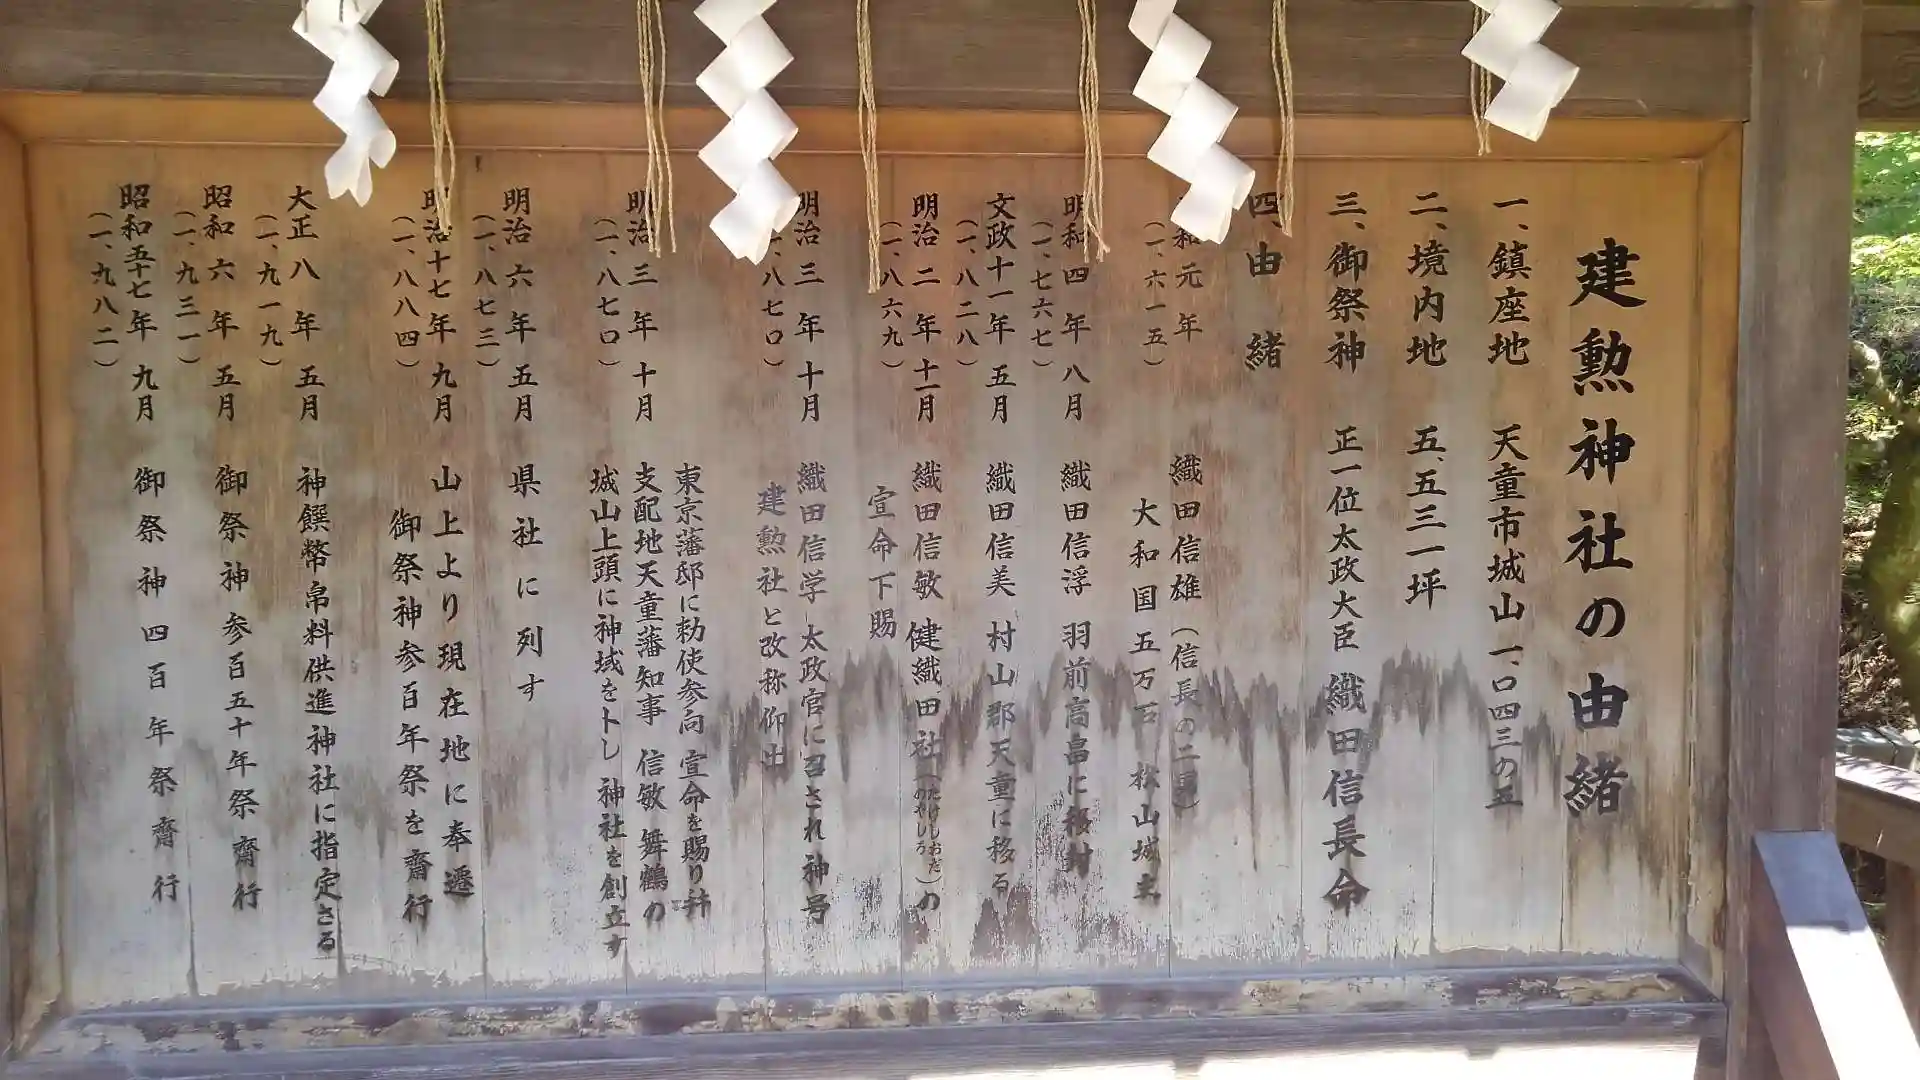 建勲神社の由緒
一、鎮座地 天童市城山一、〇四三の五
二、境内地 五、五三一坪
三、御祭神 正一位太政大臣 織田信長命
四、由緒
和元年 織田信雄(信長の二男)
(一、六一五) 大和国五万石 松山城主
明和四年八月 織田信浮 羽前高畠に移封
(一、七六七)
文政十一年五月 織田信美 村山郡天童に移る
(一、八二八)
明治二年十一月 織田信敏 健織田社(たけしおだのやしろ)の
(一、八六九) 宣命下賜
明治三年十月 織田信学 太政官に召され神号
(一、八七〇) 建勲社と改称仰出
東京藩邸に勅使参向 宣命を賜り斡
明治三年十月 支配地天童藩知事 信敏 舞鶴の
(一、八七〇) 城山上頭に神域を卜し 神社を創立す
明治六年五月 県社に列す
(一、八七三)
明治十七年九月 山上より現在地に奉遷
(一、八八四) 御祭神参百年祭を齋行
大正八年五月 神饌幣帛料供進神社に指定さる
(一、九一九)
昭和六年五月 御祭神参百五十年祭齋行
(一、九三一)
昭和五十七年九月 御祭神四百年祭齋行
(一、九八二)